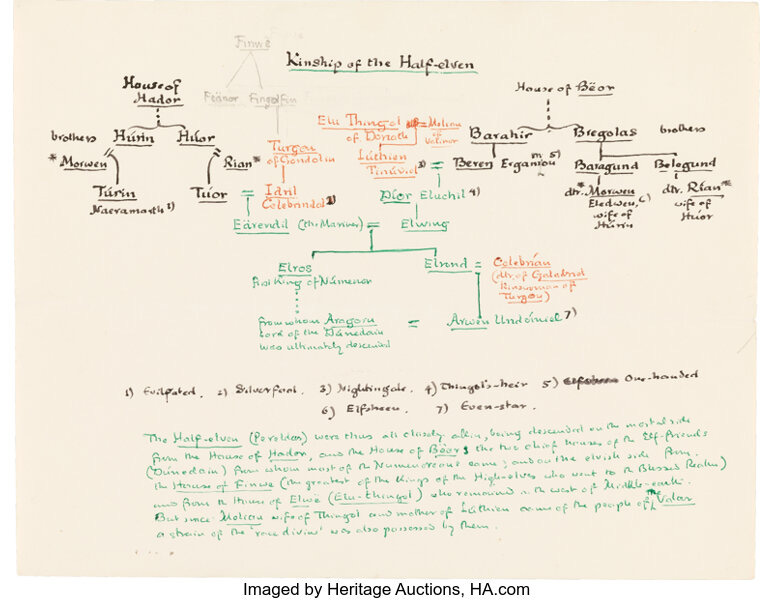 Finwë
Kinship of the Half-elven
House of
Hador
House of Bëor
Fëanor Fingolfin
brothers Húrin Húor
Elu Thingol = Melian
of Doriath of Valinor
Barahir Bregolas brothers
* Morwen Rian *
Turgon
of Gondolin
Lúthien
Tinúviel 3) = Beren Erchamion 5)
Baragund Belegund
Túrin
Naeramarth 1)
Túor = Idril
Celebrindal 2)
Dior Eluchil 4)
dtr. * Morwen
Eledwen, 6)
wife of
Húrin
dtr. Rían *
wife of
Húor
Eärendil (the Mariner) = Elwing
Elros
first king of Númenor
Elrond = Celebrían
(dtr. of Galadriel
kinswoman of
Turgon)
from whom Aragorn
Lord of the Dúnedain
was ultimately descended
= Arwen Undómiel 7)
1) Evilfated, 2) Silverfoot, 3) Nightingale, 4) Thingol's-heir 5) One-handed
6) Elfsheen, 7) Even-star.
The Half-elven (Pereldar) were thus all closely akin, being descended on the mortal side
from the House of Hador, and the House of Bëor, the two chief houses of the Elf-friends
(Dúnedain) from whom most of the Númenoreans came; and on the elvish side from
the House of Finwë (the greatest of the Kings of the High-elves who went to the Blessed Realm)
and from the House of Elwë (Elu-thingol) who remained in the west of Middle-earth.
But since Melian wife of Thingol and mother of Lúthien came of the people of the Valar
a strain of the 'race divine' was also possessed by them.
Imaged by Heritage Auctions, HA.com